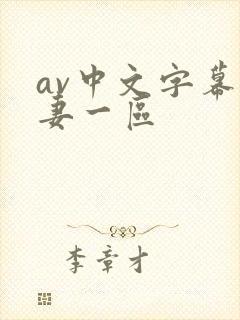 av中文字幕
妻一區
李章才